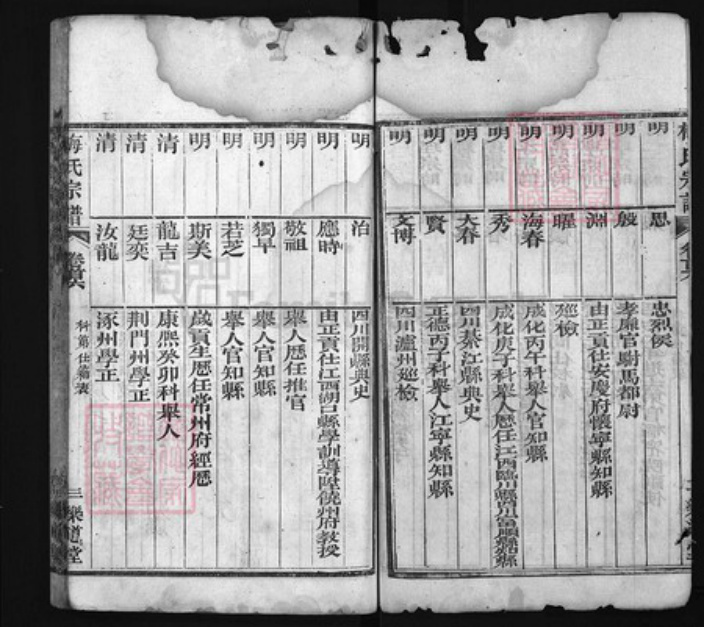 明 思 忠烈侯
明 殷 孝廉官尉馬都尉
明 淵 由正貢仕安慶府懷寧縣知縣
明 曜 巡檢
明 海春 成化丙午科舉人官知縣
明 秀 成化庚子科舉人歷任江西臨川縣四川富順縣知縣
明 大春 四川綦江縣典史
明 賢 正德丙子科舉人江寧縣知縣
明 文博 四川瀘州巡檢
明 治 四川開縣典史
明 應時 由正貢仕江西湖口縣學訓導陞饒州府教授
明 敬祖 舉人歷任推官
明 獨早 舉人官知縣
明 若芝 舉人官知縣
明 斯美 歲貢生歷任常州府經歷
清 龍吉 康熙癸卯科舉人
清 廷奕 荆門州學正
清 汝龍 涿州學正
梅氏宗譜 卷首六 科第仕籍表 三 樂道堂